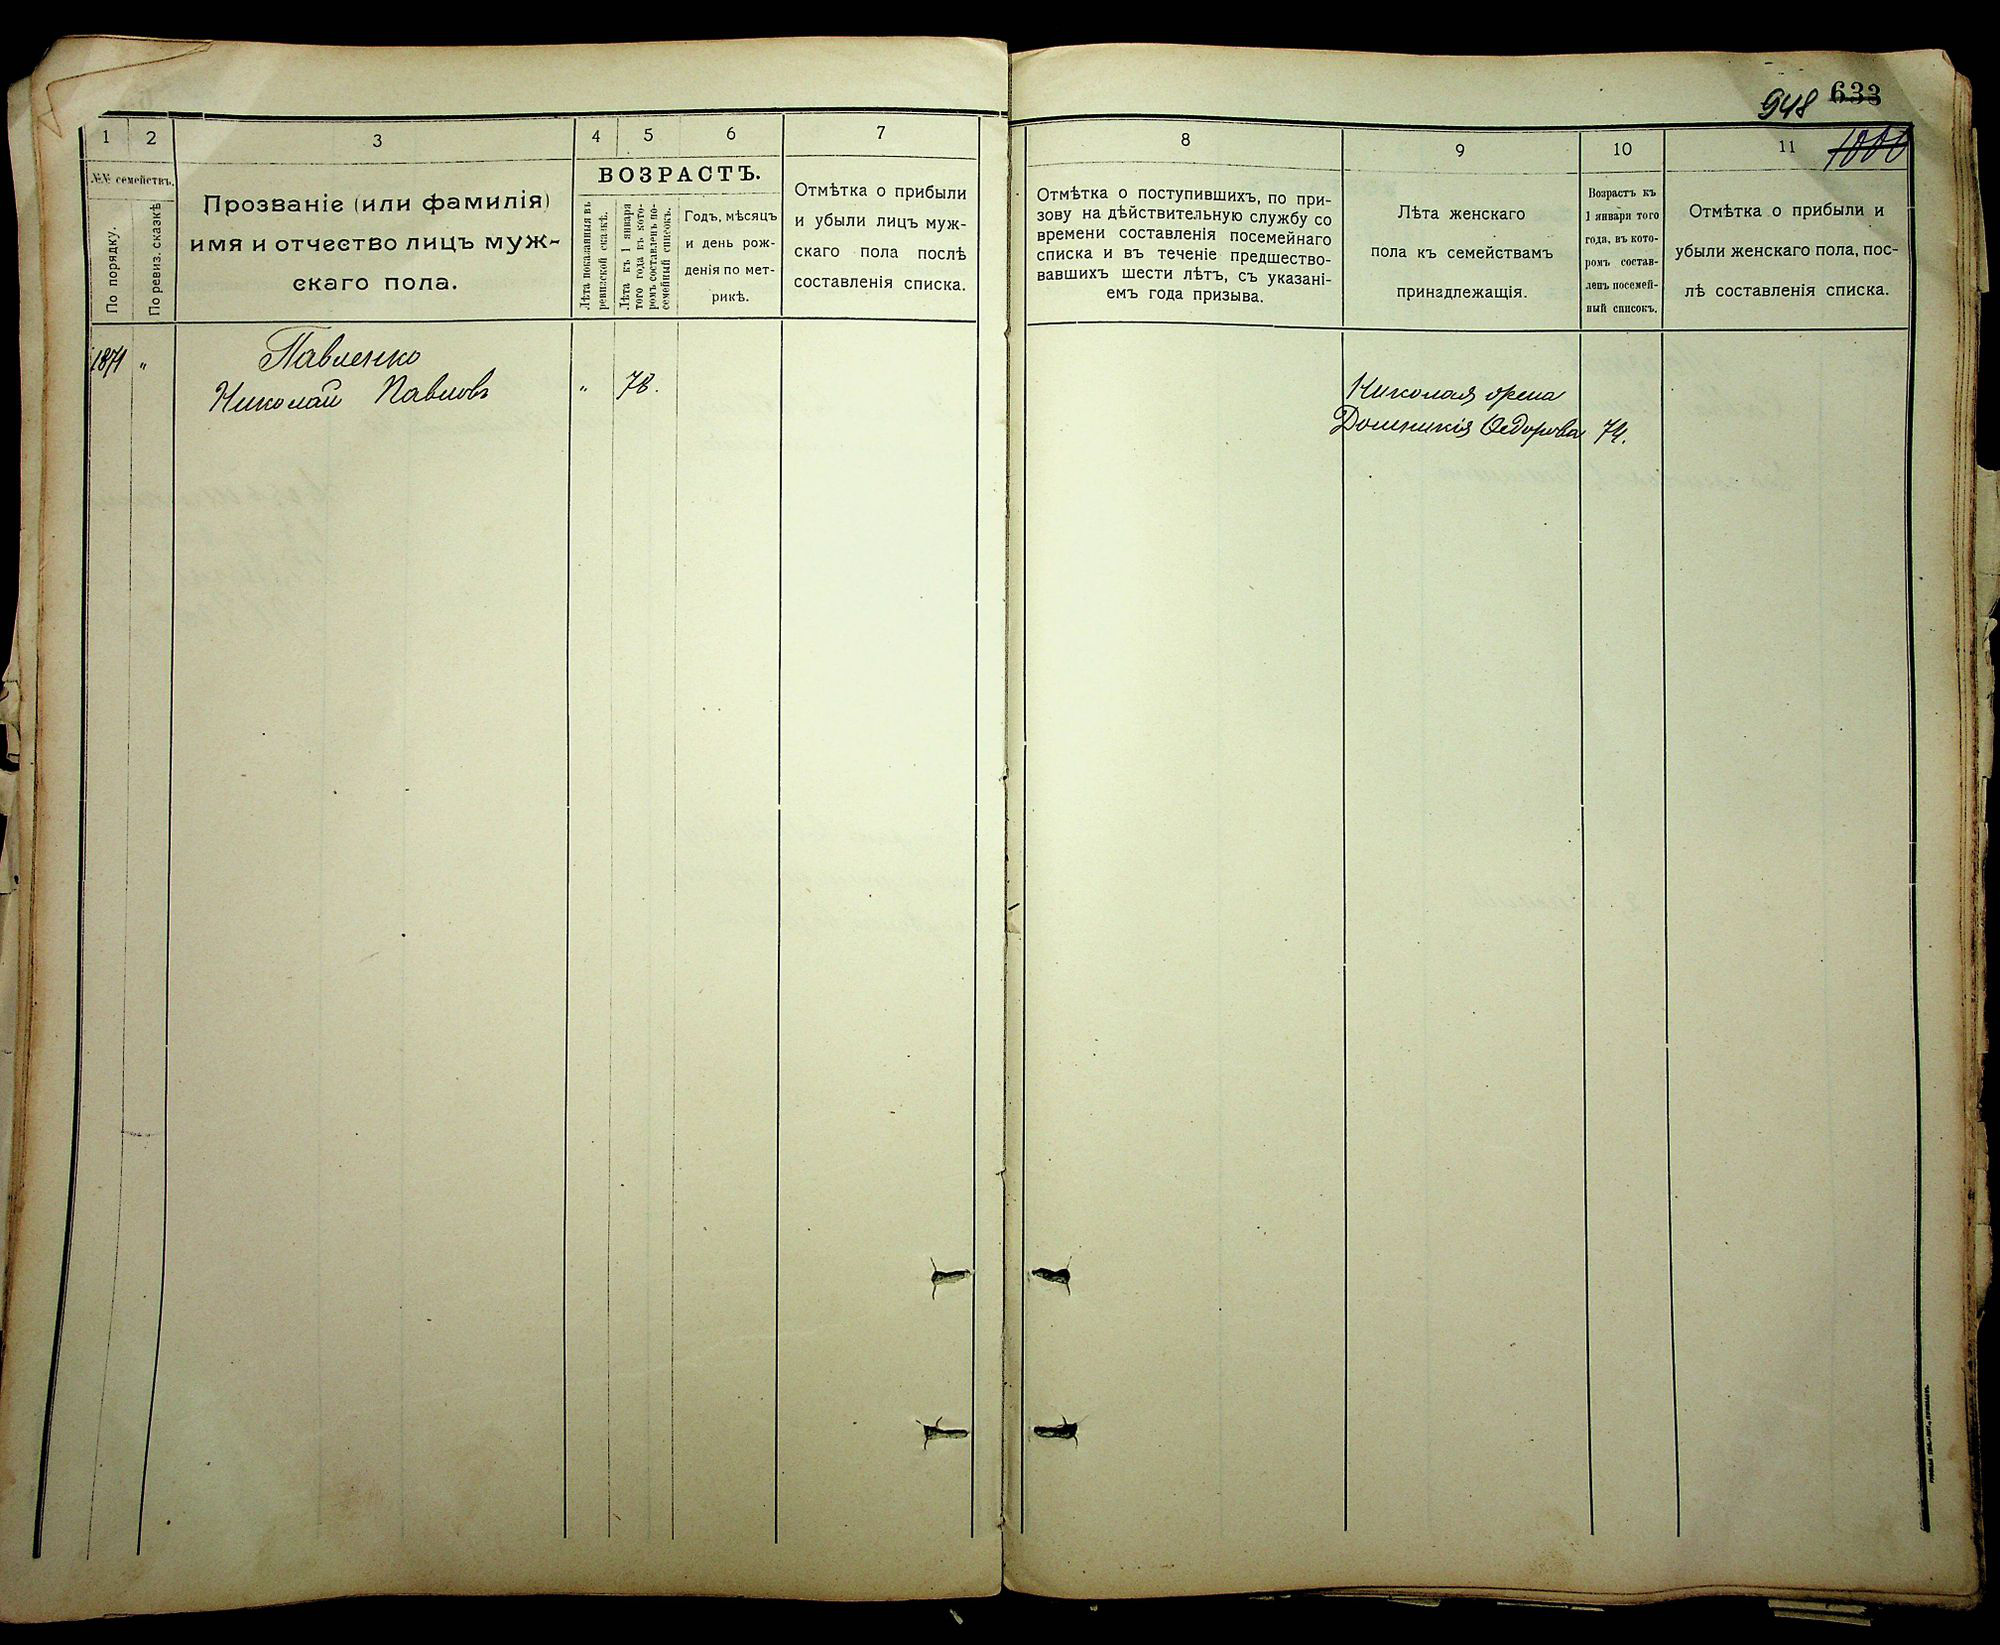 948 633
1000
1 2 3 4 5 6 7
№№ семействъ.
По порядку.
По ревиз. сказкѣ
Прозваніе (или фамилія)
имя и отчество лицъ муж-
скаго пола.
ВОЗРАСТЪ.
Лѣта показанныя въ
ревизской сказкѣ.
Лѣта къ 1 января
того года въ кото-
ромъ составленъ по-
семейный списокъ.
Годъ, мѣсяцъ
и день рож-
денія по мет-
рикѣ.
Отмѣтка о прибыли
и убыли лицъ муж-
скаго пола послѣ
составленія списка.
8 9 10 11
Отмѣтка о поступившихъ, по при-
зову на дѣйствительную службу со
времени составленія посемейнаго
списка и въ теченіе предшество-
вавшихъ шести лѣтъ, съ указані-
емъ года призыва.
Лѣта женскаго
пола къ семействамъ
принадлежащія.
Возрастъ къ
1 января того
года, въ кото-
ромъ состав-
ленъ посемей-
ный списокъ.
Отмѣтка о прибыли и
убыли женскаго пола, пос-
лѣ составленія списка.
1871 " Павленко
Николай Павловъ " 78.
Николая
Домникія Федорова 74.